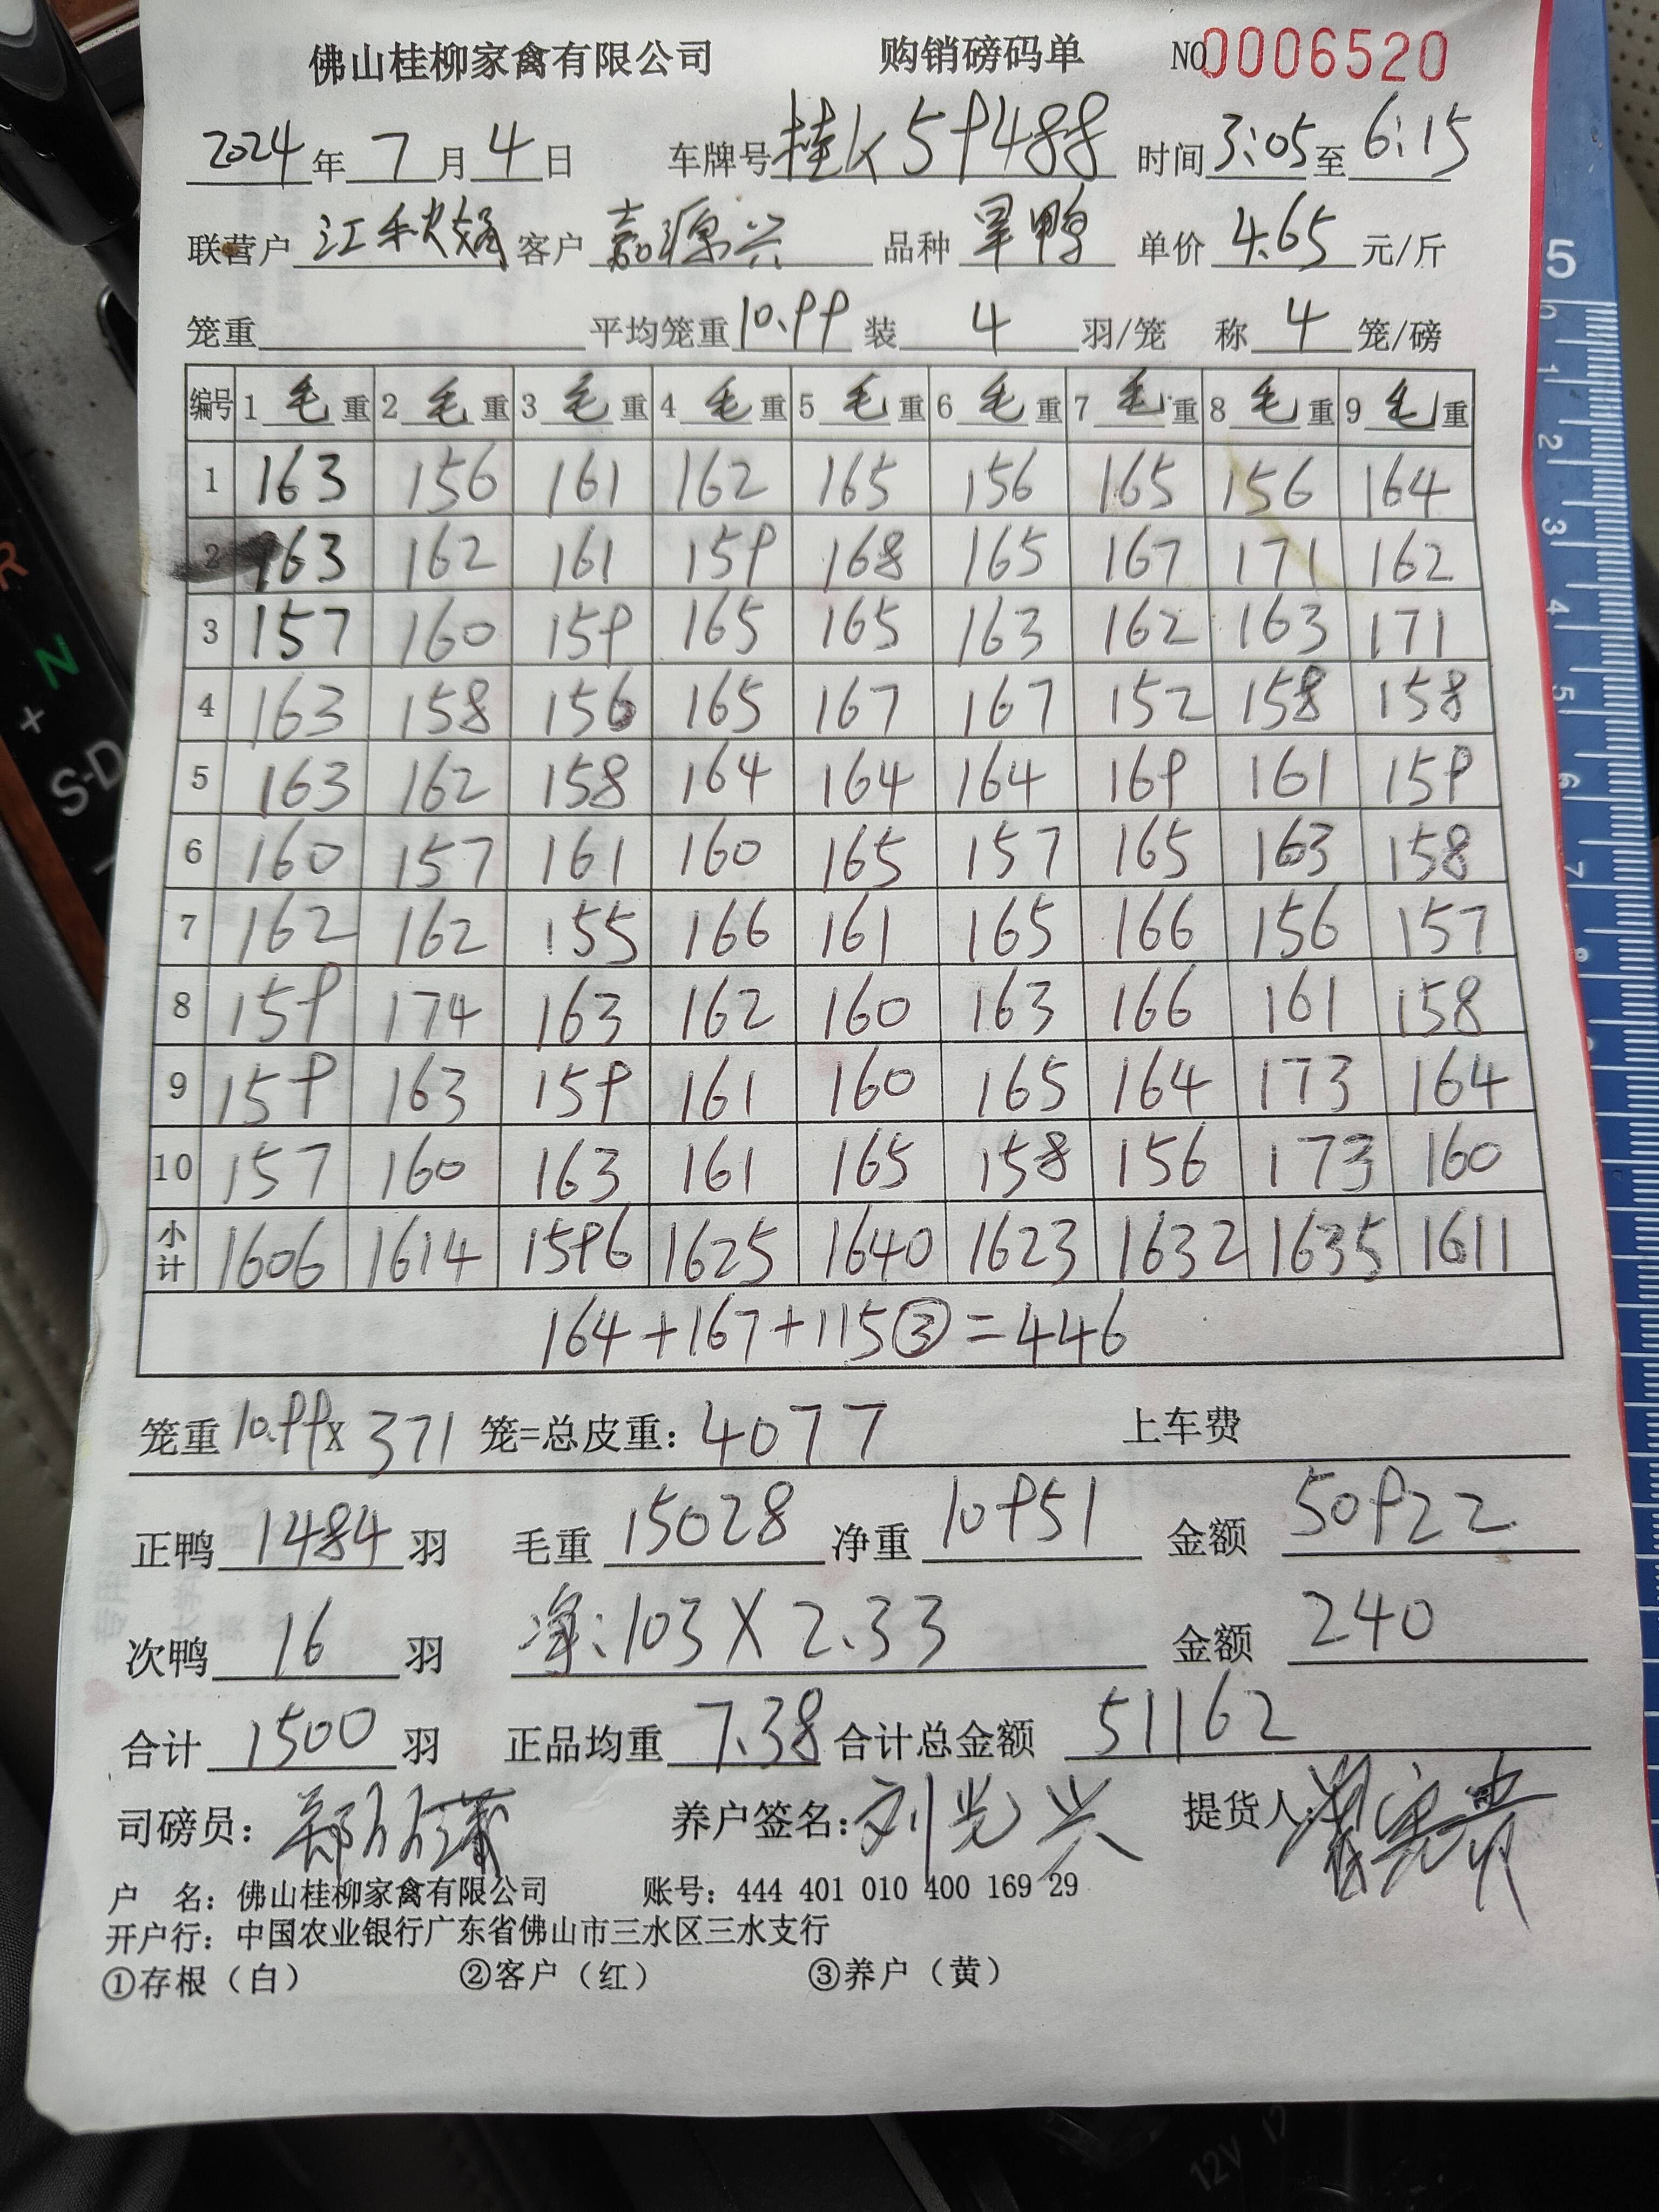 佛山桂柳家禽有限公司 购销磅码单 NO 0006520
2024年7月4日 车牌号 桂K59488 时间 3:05 至 6:15
联营户 江秋 客户 嘉源兴 品种 旱鸭 单价 4.65 元/斤
笼重 平均笼重 10.99 装 4 羽/笼 称 4 笼/磅
编号 1 毛 重 2 毛 重 3 毛 重 4 毛 重 5 毛 重 6 毛 重 7 毛 重 8 毛 重 9 毛 重
1 163 156 161 162 165 156 165 156 164
2 163 162 161 159 168 165 167 171 162
3 157 160 159 165 165 163 162 163 171
4 163 158 156 165 167 167 152 158 158
5 163 162 158 164 164 164 169 161 159
6 160 157 161 160 165 157 165 163 158
7 162 162 155 166 161 165 166 156 157
8 159 174 163 162 160 163 166 161 158
9 159 163 159 161 160 165 164 173 164
10 157 160 163 161 165 158 156 173 160
小计 1606 1614 1596 1625 1640 1623 1632 1635 1611
164+167+115③=446
笼重 10.99 X 371 笼=总皮重: 4077 上车费
正鸭 1484 羽 毛重 15028 净重 10951 金额 50922
次鸭 16 羽 净:103X2.33 金额 240
合计 1500 羽 正品均重 7.38 合计总金额 51162
司磅员: 养户签名: 刘光兴 提货人:
户 名: 佛山桂柳家禽有限公司 账号: 444 401 010 400 169 29
开户行: 中国农业银行广东省佛山市三水区三水支行
①存根(白) ②客户(红) ③养户(黄)
R
N
+
S-D
5
0
1
2
3
4
5
6
7
12V